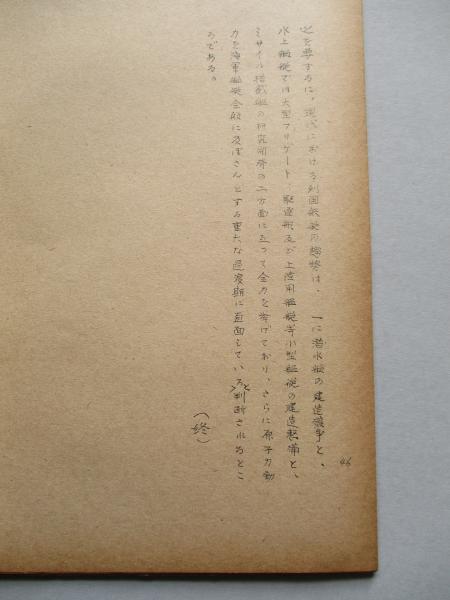 之を要するに、現代における列国艦艇の趨勢は、一に潜水艦の建造競争と、
水上艦艇では大型フリゲート、駆逐艦及び上陸用艦艇等小型艦艇の建造整備と、
ミサイル搭載艦の研究開発の二方面に亘って全力を挙げており、さらに原子力動
力を海軍艦艇全般に及ぼさんとする重大な過渡期に直面していると判断されるとこ
ろである。
(終)
46